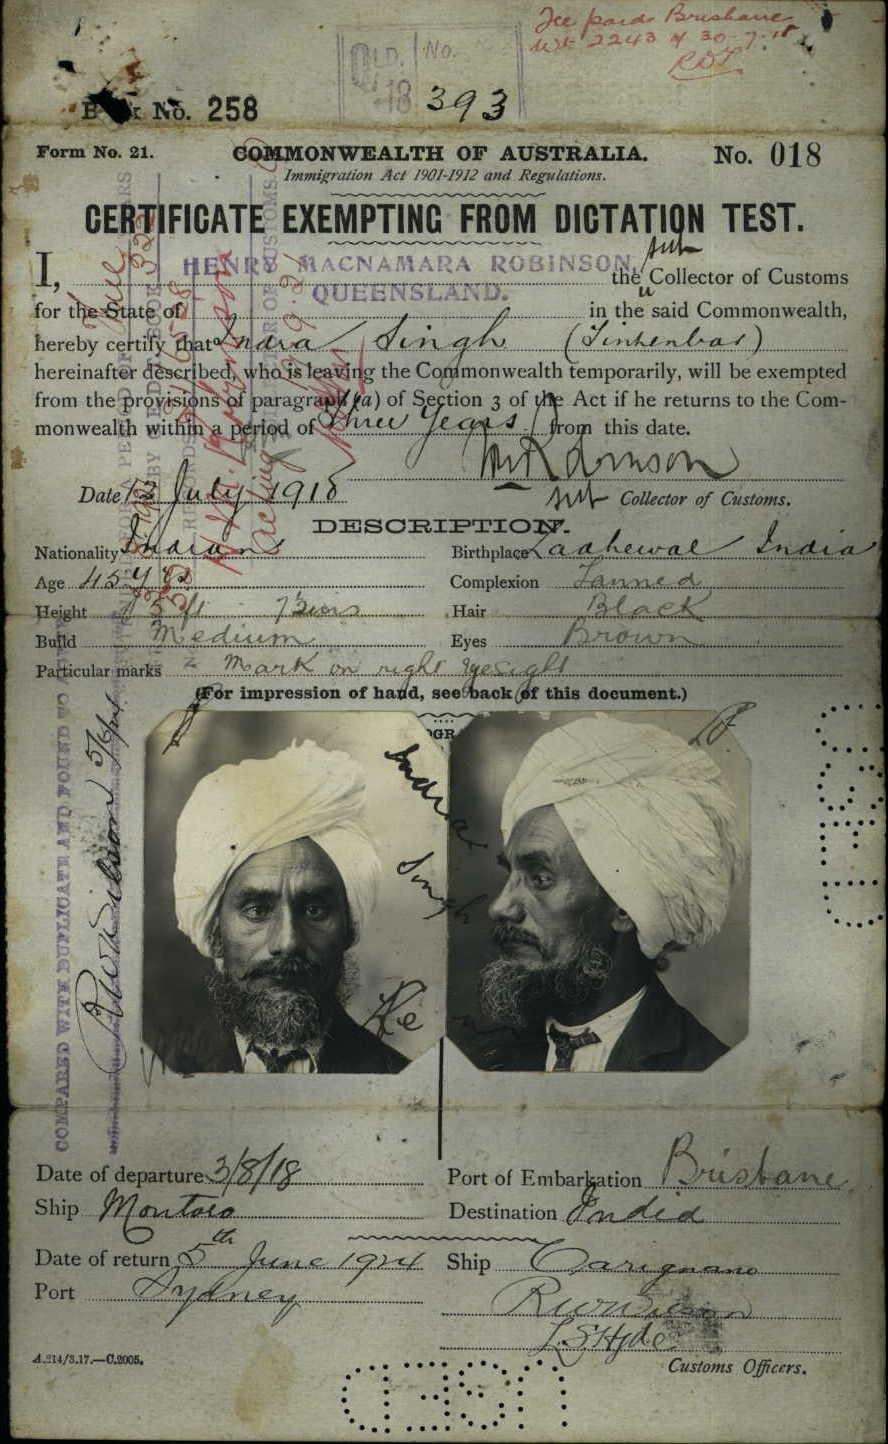 Fee paid Brisbane
2243 of 30-7-18
QLD. No.
18
393
Book No. 258
Form No. 21. COMMONWEALTH OF AUSTRALIA. No. 018
Immigration Act 1901-1912 and Regulations.
CERTIFICATE EXEMPTING FROM DICTATION TEST.
I, HENRY MACNAMARA ROBINSON, the Sub Collector of Customs
for the State of QUEENSLAND. in the said Commonwealth,
hereby certify that Indra Singh (Tintenbar)
hereinafter described, who is leaving the Commonwealth temporarily, will be exempted
from the provisions of paragraph (a) of Section 3 of the Act if he returns to the Com-
monwealth within a period of Three Years from this date.
Date 13 July 1918
Sub Collector of Customs.
DESCRIPTION.
Nationality Indian Birthplace India
Age 45 yrs Complexion Tanned
Height 5 ft 7½ ins Hair Black
Build Medium Eyes Brown
Particular marks Mark on right eyesight
(For impression of hand, see back of this document.)
Indrat
Singh
COMPARED WITH DUPLICATE AND FOUND TO
RWWilson 5/6/24
Date of departure 3/8/18 Port of Embarkation Brisbane
Ship Montoro Destination India
Date of return 5th June 1924 Ship Carignano
Port Sydney
RWWilson
L.S. Hyde
A.214/3.17.—C.2005. Customs Officers.
USED
USED